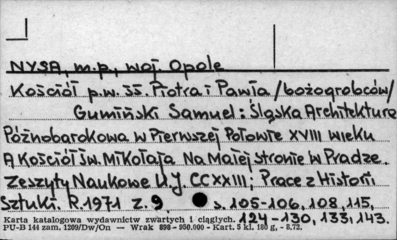 NYSA, m.p., woj. Opole
Kościół p.w. SS. Piotra i Pawła /bożogrobców/
Gumiński Samuel: Śląska Architektura
Późnobarokowa w Pierwszej Połowie XVIII wieku
A Kościół Św. Mikołaja Na Małej Stronie w Pradze.
Zeszyty Naukowe U.J. CCXXIII; Prace z Historii
Sztuki. R. 1971 z. 9 s. 105-106, 108, 115,
124-130, 133, 143.
Karta katalogowa wydawnictw zwartych i ciągłych.
PU-B 144 zam. 1209/Dw/On — Wrak 893 - 950.000 - Kart. 5 kl. 180 g, - 8.72.